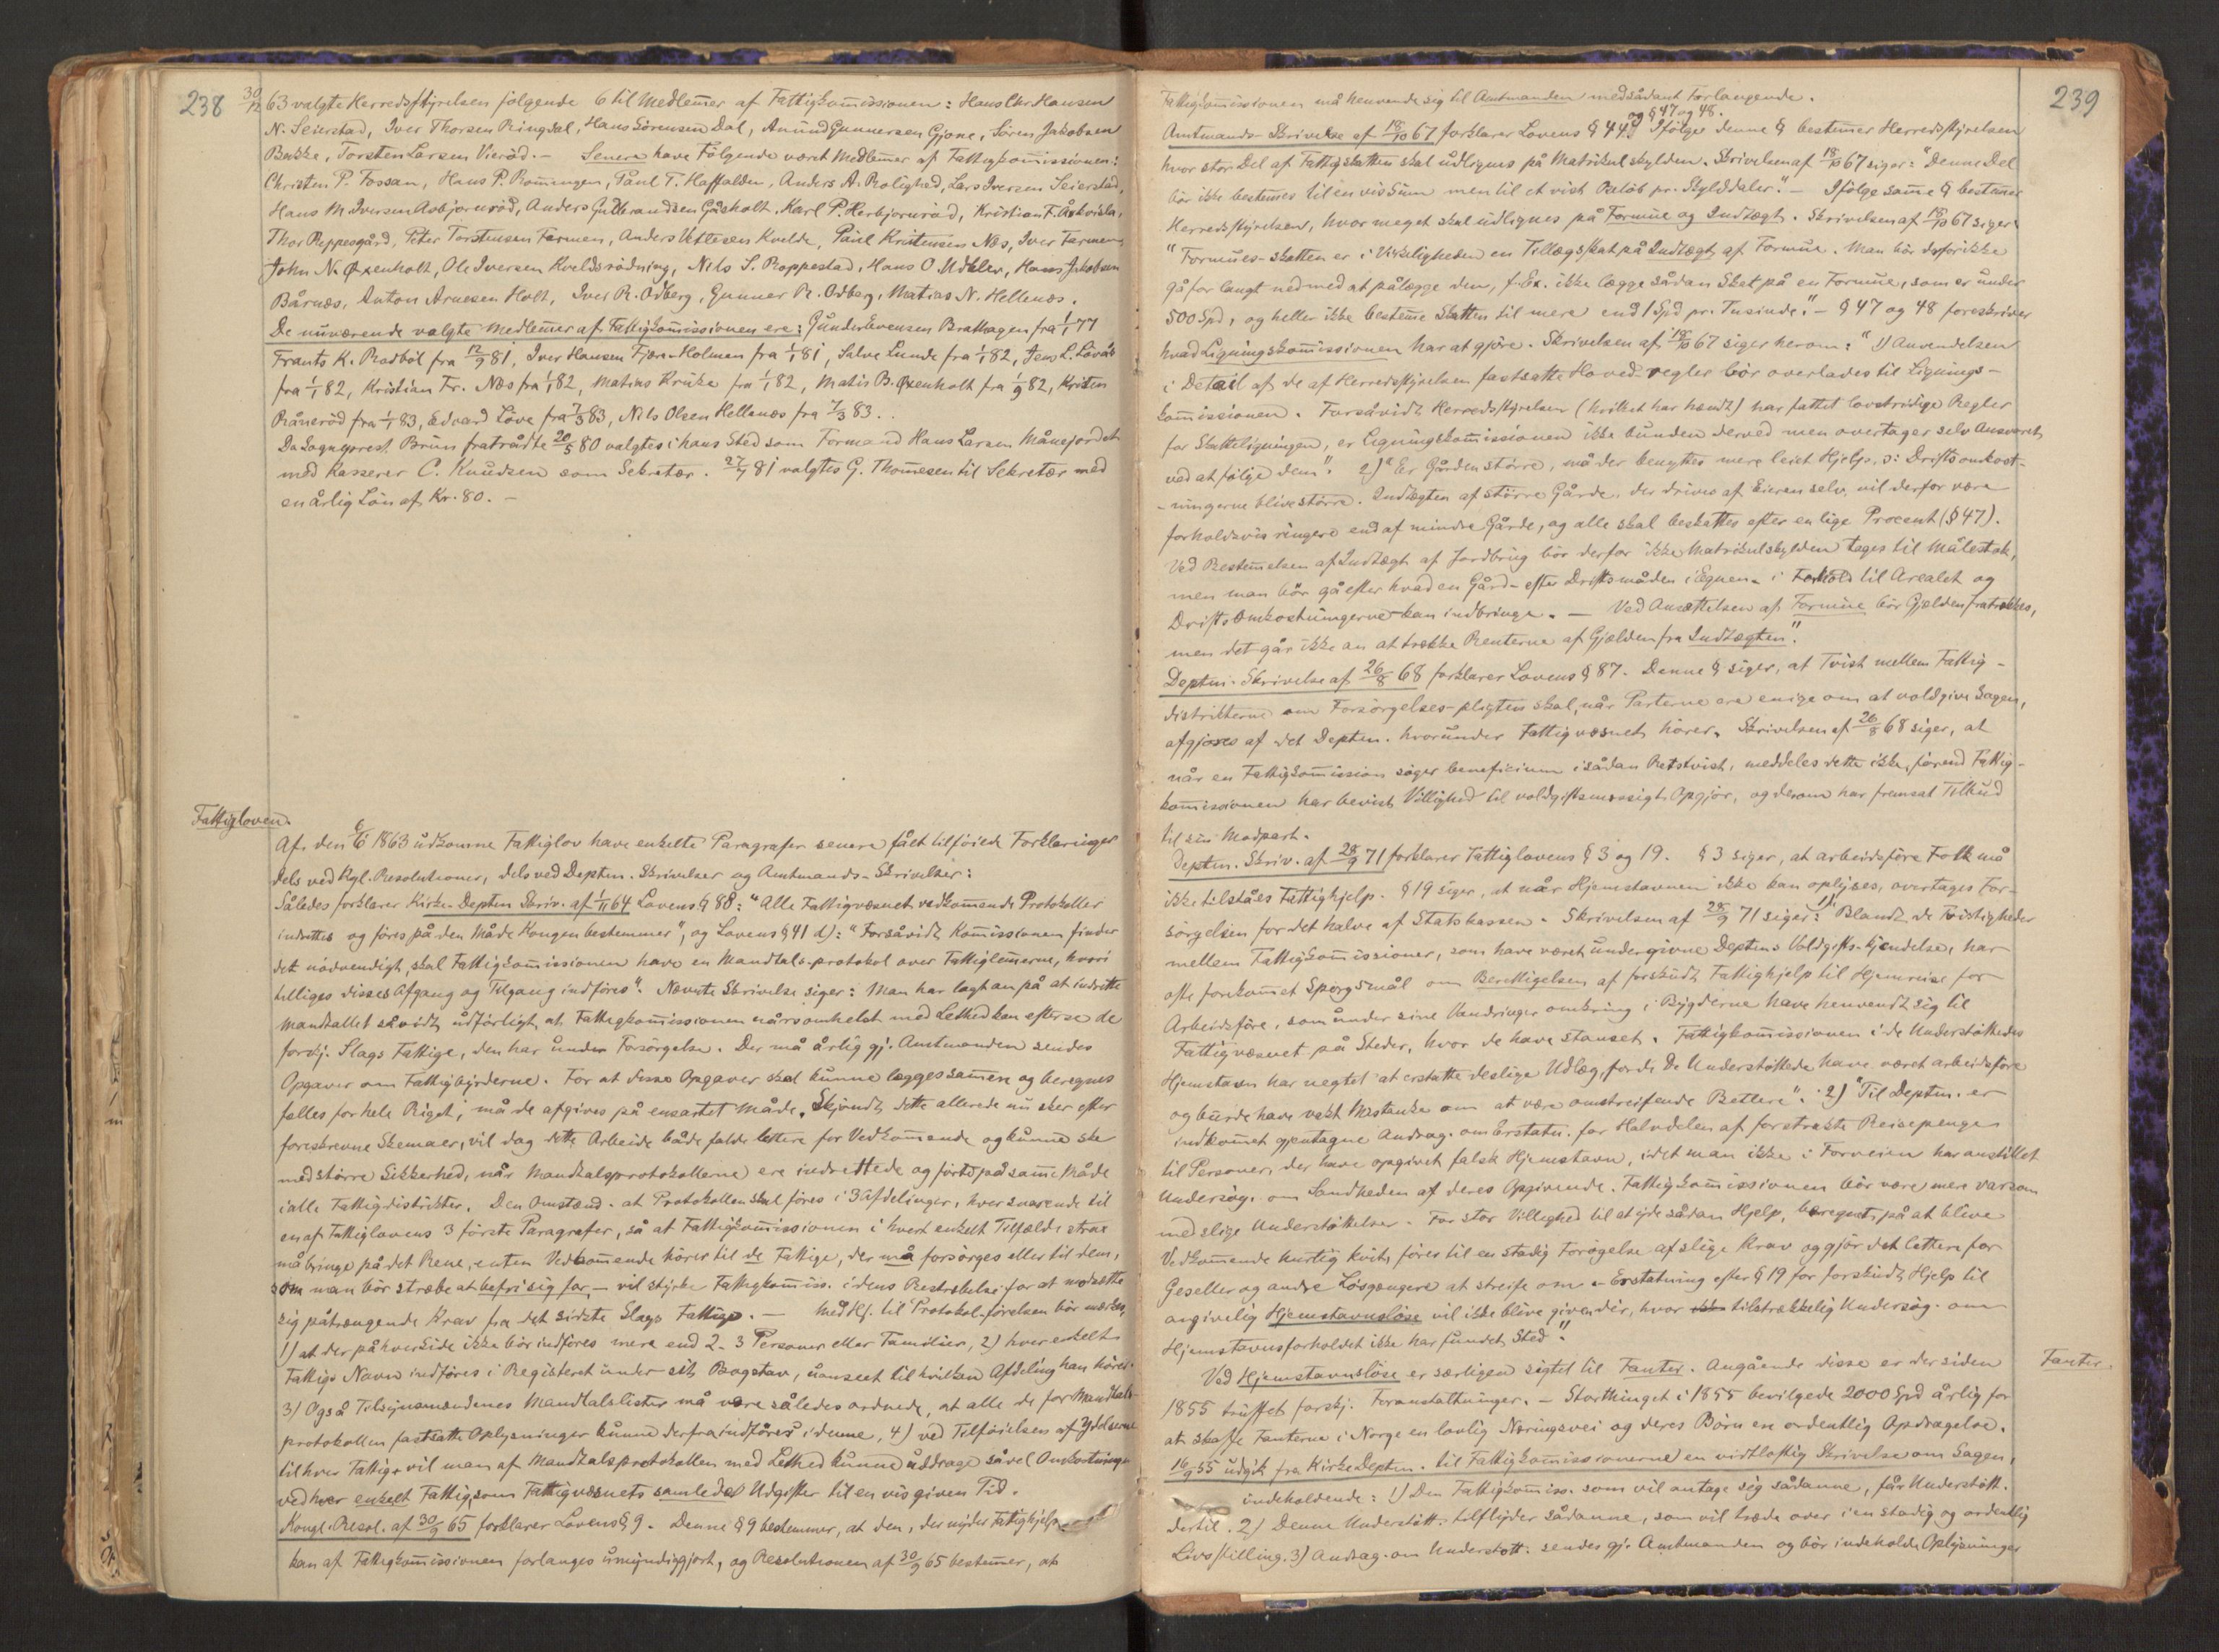 238
30/12 63 valgte Herredsstyrelsen følgende 6 til Medlemer af Fattigkomissionen: Hans Chr. Hansen
N. Seierstad, Iver Thorsen Ringdal, Hans Sörensen Dal, Anund Gunnersen Gjone, Sören Jakobsen
Bakke, Torsten Larsen Vieröd. — Senere have Følgende været Medlemer af Fattigkomissionen:
Christen P. Fossan, Hans P. Romingen, Paul T. Haffalden, Anders A. Rolighed, Lars Iversen Seierstad,
Hans M. Iversen Asbjørnröd, Anders Gulbrandsen Gåsholt, Karl P. Herbjørnröd, Kristian F. Åsbvisla,
Thor Reppesgård, Peter Torstensen Farmen, Anders Vettesen Kvelde, Paul Kristensen Nes, Iver Farmen,
John N. Øxenholt, Ole Iversen Kveldsrödning, Nils S. Roppestad, Hans O. Udklev, Hans Jakobsen
Bårnæs, Anton Arnesen Holt, Iver R. Odberg, Gunner R. Odberg, Matias N. Hellenæs.
De nuværende valgte Medlemer af Fattigkomissionen ere: Gunder Evensen Brathagen fra 1/1 77
Frants K. Rødböl fra 12/9 81, Iver Hansen Fjære-Holmen fra 1/1 81, Salve Lunde fra 1/1 82, Jens L. Lövås
fra 1/1 82, Kristian Fr. Næs fra 1/1 82, Matias Kruke fra 1/1 82, Matis B. Øxenholt fra 1/9 82, Kristen
Råneröd fra 1/1 83, Edvard Löve fra 7/3 83, Nils Olsen Hellenæs fra 7/3 83.
Da Sogneprest Bruun fratrådte 20/5 80 valgtes i hans Sted som Formand Hans Larsen Månejordet
med Kasserer C. Knudsen som Sekretær. 27/7 81 valgtes G. Thomesen til Sekretær med
en årlig Lön af Kr. 80. —
Fattigloven.
Af den 6/6 1863 udkomne Fattiglov have enkelte Paragrafer senere fået tilföiede Forklaringer
dels ved Kgl. Resolutioner, dels ved Deptm. Skrivelser og Amtmands-Skrivelser:
Således forklarer Kirke-Deptm Skriv. af 1/11 64 Lovens § 88: "Alle Fattigvæsnet vedkomende Protokoller
indrettes og föres på den Måde Kongen bestemmer", og Lovens § 41 d): "Forsåvidt Komissionen finder
det nödvendigt, skal Fattigkomissionen have en Mandtals-protokol over Fattiglemerne, hvori
tilliges disses Afgang og Tilgang indføres". Nævnte Skrivelse siger: Man har lagt an på at indrette
Mandtallet såvidt udförligt, at Fattigkomissionen nårsomhelst med Lethed kan efterse de
forskj. Slags Fattige, den har under Forsörgelse. Der må årlig gj. Amtmanden sendes
Opgaver om Fattigbyrderne. For at disse Opgaver skal kunne lægges samen og beregnes
fælles for hele Riget, må de afgives på ensartet Måde. Skjöndt dette allerede nu sker efter
foreskrevne Skemaer, vil dog dette Arbeide både falde lettere for Vedkomende og kunne ske
med större Sikkerhed, når Mandtalsprotokollerne ere indrettede og førte på same Måde
i alle Fattigdistrikter. Den Omstænd. at Protokollen skal föres i 3 Afdelinger, hver svarende til
en af Fattiglovens 3 förste Paragrafer, så at Fattigkomissionen i hvert enkelt Tilfælde strax
må bringe på det Rene, enten Vedkomende hörer til de Fattige, der må forsörges eller til dem,
som man bör stræbe at befri sig for, — vil styrke Fattigkomiss. i dens Bestræbelse for at modsætte
sig påtrængende Krav fra det sidste Slags Fattige. — Med H. til Protokol-förelsen bör mærkes,
1) at der på hver Side ikke bör indföres mere end 2-3 Personer eller Familier, 2) hver enkelt
Fattigs Navn indföres i Registeret under sit Bogstav, uanseet til hvilken Afdeling han hörer.
3) Også Tilsynsmændenes Mandtalslister må være således ordnede, at alle de for Mandtals-
protokollen fastsatte Oplysninger kunne derfra indföres i denne, 4) ved Tilföielsen af Ydelserne
til hver Fattig vil man af Mandtalsprotokollen med Lethed kunne uddrage såvel Omkostninge
ved hver enkelt Fattig, som Fattigvæsnets samlede Udgifter til en vis given Tid.
Kongl. Resol. af 30/9 65 forklarer Lovens § 9. Denne § 9 bestemmer, at den, der nyder Fattighjelp
kan af Fattigkomissionen forlanges umyndiggjort, og Resolutionen af 30/9 65 bestemer, at
239
Fattigkomissionen må henvende sig til Amtmanden med sådant Forlangende.
Amtmands-Skrivelse af 18/10 67 forklarer Lovens § 44 og § 47 og 48. Ifölge denne § bestemer Herredsstyrelsen
hvor stor Del af Fattigskatten skal udlignes på Matrikulskylden. Skrivelsen af 18/10 67 siger: "Denne Del
bör ikke bestemes til en vis Sum men til et vist Belöb pr. Skylddaler." — Ifölge same § bestemer
Herredsstyrelsen, hvor meget skal udlignes på Formue og Indtægt. Skrivelsen af 18/10 67 siger:
"Formues-skatten er i Virkeligheden en Tillægsskat på Indtægt af Formue. Man bör derfor ikke
gå for langt ned med at pålægge den, f. Ex. ikke lægge sådan Skat på en Formue, som er under
500 Spd, og heller ikke besteme Skatten til mere end 1 Spd pr. Tusinde." — § 47 og 48 foreskriver
hvad Ligningskomissionen har at gjöre. Skrivelsen af 18/10 67 siger herom: "1) Anvendelsen
i Detail af de af Herredsstyrelsen fastsatte Hoved-regler bör overlades til Lignings-
komissionen. Forsåvidt Herredsstyrelsen (hvilket har hændt) har fattet lovstridige Regler
for Skatteligningen, er Ligningskomissionen ikke bunden derved men overtager selv Ansvaret
ved at fölge dem". 2) "Er Gården större, må der benyttes mere leiet Hjelp, ɔ: Driftsomkost-
-ningerne blive större. Indtægten af större Gårde, der drives af Eieren selv, vil derfor være
forholdsvis ringere end af mindre Gårde, og alle skal beskattes efter en lige Procent (§ 47).
Ved Bestemelsen af Indtægt af Jordbrug bör derfor ikke Matrikulskylden tages til Målestok,
men man bör gå efter hvad en Gård - efter Driftsmåden i Egnen - i Forhold til Arealet og
Driftsomkostningerne - kan indbringe. — Ved Ansættelsen af Formue bör Gjelden fratrækkes,
men det går ikke an at trække Renterne af Gjælden fra Indtægten".
Deptm. Skrivelse af 26/8 68 forklarer Lovens § 87. Denne § siger, at Tvist mellem Fattig-
distrikterne om Forsörgelses-pligten skal, når Parterne ere enige om at voldgive Sagen,
afgjøres af det Deptm. hvorunder Fattigvæsnet hörer. Skrivelsen af 26/8 68 siger, at
når en Fattigkomission söger beneficium i sådan Retstvist, meddeles dette ikke, förend Fattig-
komissionen har bevist Villighed til voldgiftsmæssigt Opgjör, og derom har fremsat Tilbud
til sin Modpart.
Deptm. Skriv. af 28/9 71 forklarer Fattiglovens § 3 og 19. § 3 siger, at arbeidsföre Folk må
ikke tilståes Fattighjelp. § 19 siger, at når Hjemstavnen ikke kan oplyses, overtages For-
sörgelsen for det halve af Statskassen. Skrivelsen af 28/9 71 siger: 1) "Blandt de Tvistigheder
mellem Fattigkomissioner, som have været undergivne Deptms Voldgifts-kjendelse, har
ofte forekomet Spörgsmål om Berettigelsen af forskudt Fattighjelp til Hjemreise for
Arbeidsföre, som under sine Vandringer omkring i Bygderne have henvendt sig til
Fattigvæsenet på Steder, hvor de have stanset. Fattigkomissionen i de Understöttedes
Hjemstavn har negtet at erstatte deslige Udlæg, fordi De Understöttede have været arbeidsföre
og burde have vakt Mistanke om at være omstreifende Betlere". 2) "Til Deptm. er
indkomet gjentagne Andrag. om Erstatn. for Halvdelen af forstrakte Reisepenge
til Personer, der have opgivet falsk Hjemstavn, idet man ikke i Forveien har anstillet
Undersög. om Sandheden af deres Opgivende. Fattigkomissionen bör være mere varsom
med slige Understöttelser. For stor Villighed til at yde sådan Hjelp, beregnet på at blive
Vedkomende hurtig kvit, förer til en stadig Forögelse af slige Krav og gjör det lettere for
Geseller og andre Lösgængere at streife om. - Erstatning efter § 19 for forskudt Hjelp til
angivelig Hjemstavnslöse vil ikke blive given dér, hvor tilstrækkelig Undersög. om
Hjemstavnsforholdet ikke har fundet Sted".
Ved Hjemstavnslöse er særligen sigtet til Fanter. Angående disse er der siden
Fanter.
1855 truffet forskj. Foranstaltninger. — Storthinget i 1855 bevilgede 2000 Spd årlig for
at skaffe Fanterne i Norge en lovlig Næringsvei og deres Börn en ordentlig Opdragelse.
16/9 55 udgik fra Kirke Deptm. til Fattigkomissionerne en vidtløftig Skrivelse om Sagen,
indeholdende: 1) Den Fattigkomiss. som vil antage sig sådanne, får Understött.
dertil. 2) Denne Understött. tilflyder sådanne, som vil træde over i en stadig og ordentlig
Livsstilling. 3) Andrag. om Understött. sendes gj. Amtmanden og bör indeholde Oplysninger